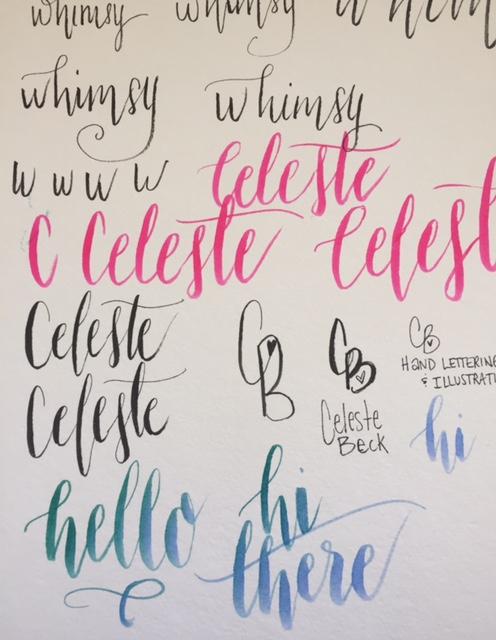 whimsy whimsy
whimsy whimsy
w w w w Celeste
C Celeste Celest
Celeste
CB CB CB
HAND LETTERING
& ILLUSTRATI
Celeste
Celeste
Beck
hi
hello hi
there